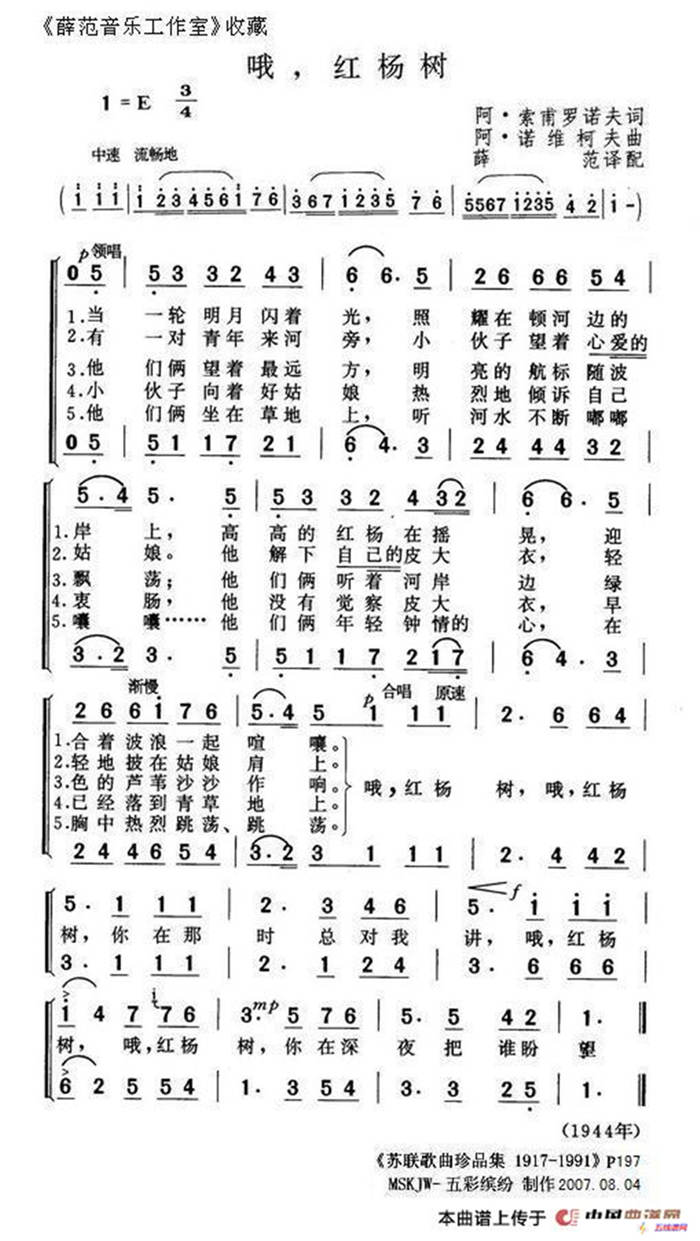 《薛范音乐工作室》收藏
哦，红杨树
1=E 3/4
阿·索甫罗诺夫词
阿·诺维柯夫曲
薛 范译配
中速 流畅地
( 1 1 1 | 1 2 3 4 5 6 1 7 6 | 3 6 7 1 2 3 5 7 6 | 5 5 6 7 1 2 3 5 4 2 | 1 - )
p 领唱
0 5 | 5 3 3 2 4 3 | 6 6. 5 | 2 6 6 6 5 4 |
1.当 一轮明月闪着 光，照 耀在顿河边的
2.有 一对青年来河 旁，小 伙子望着心爱的
3.他 们俩望着最远 方，明 亮的航标随波
4.小 伙子向着好姑 娘热 烈地倾诉自己
5.他 们俩坐在草地 上，听 河水不断嘟嘟
0 5 | 5 1 1 7 2 1 | 6 4. 3 | 2 4 4 4 3 2 |
5. 4 5. 5 | 5 3 3 2 4 3 2 | 6 6. 5 |
1.岸 上，高 高的红杨在摇 晃，迎
2.姑 娘。他 解下自己的皮大 衣，轻
3.飘 荡；他 们俩听着河岸 边绿
4.衷 肠，他 没有觉察皮大 衣，早
5.嚷 嚷……他 们俩年轻钟情的 心，在
3. 2 3. 5 | 5 1 1 7 2 1 7 | 6 4. 3 |
渐慢 p 合唱 原速
2 6 6 1 7 6 | 5. 4 5 1 1 1 | 2. 6 6 4 |
1.合着波浪一起 喧 嚷。
2.轻地披在姑娘 肩 上。
3.色的芦苇沙沙 作 响。 哦，红杨 树，哦，红杨
4.已经落到青草 地 上。
5.胸中热烈跳荡、跳 荡。
2 4 4 6 5 4 | 3. 2 3 1 1 1 | 2. 4 4 2 |
5. 1 1 1 | 2. 3 4 6 | 5. f 1 1 1 |
树，你在那 时 总对我 讲，哦，红杨
3. 1 1 1 | 2. 1 2 4 | 3. 6 6 6 |
1 4 7 i 7 6 | 3. mp 5 7 6 | 5. 5 4 2 | 1. ‖
树，哦，红杨 树，你在深 夜把谁盼 望
6 2 5 5 4 | 1. 5 5 5 | 3. 3 2 5 | 1. ‖
(1944年)
《苏联歌曲珍品集 1917-1991》P197
MSKJW-五彩缤纷 制作2007.08.04
本曲谱上传于 中国曲谱网
五线谱网